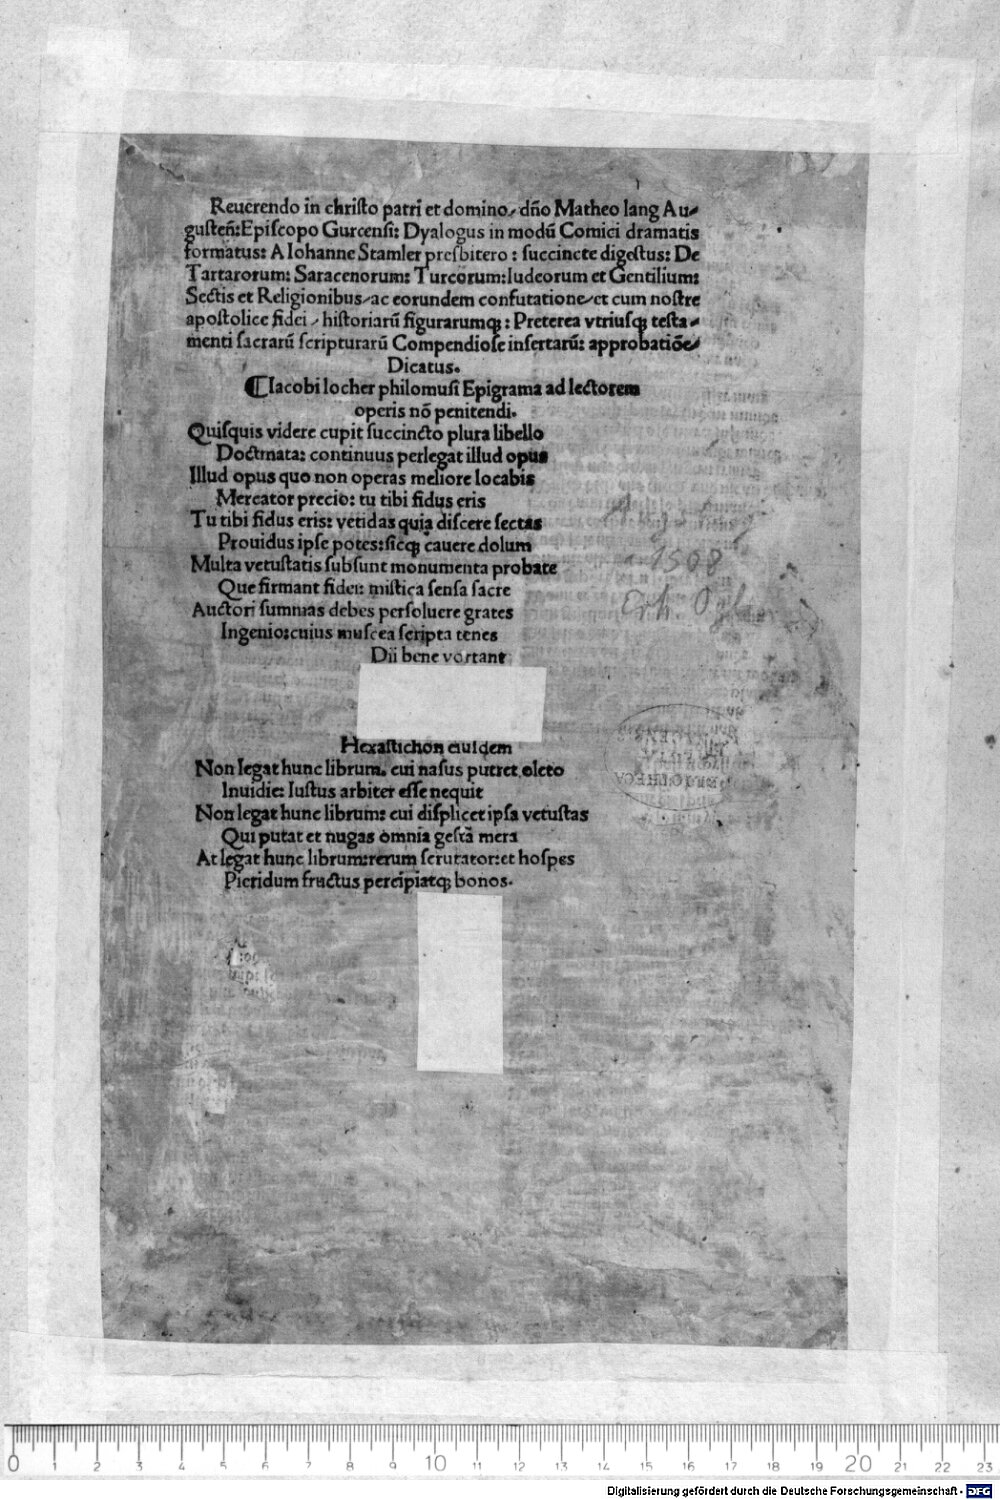 Reuerendo in christo patri et domino/ dño Matheo lang Au⸗
gusteñ: Episcopo Gurcensi: Dyalogus in modū Comici dramatis
formatus: A Iohanne Stamler presbitero : succincte digestus: De
Tartarorum: Saracenorum: Turcorum: Iudeorum et Gentilium:
Sectis et Religionibus/ ac eorundem confutatione/ et cum nostre
apostolice fidei / historiarū figurarumqꝫ : Preterea vtriusqꝫ testa⸗
menti sacrarū scripturarū Compendiose insertarū: approbatiōe/
Dicatus.
⸿ Iacobi locher philomusi Epigrama ad lectorem
operis nō penitendi.
Quisquis videre cupit succincto plura libello
Doctmata: continuus perlegat illud opus
Illud opus quo non operas meliore locabis
Mercator precio: tu tibi fidus eris
Tu tibi fidus eris: vetidas quia discere sectas
Prouidus ipse potes: sicqꝫ cauere dolum
Multa vetustatis subsunt monumenta probate
Que firmant fidei: mistica sensa sacre
Auctori summas debes persoluere grates
Ingenio: cuius muscea scripta tenes
Dii bene vortant
Hexastichon eiusdem
Non legat hunc librum. cui nasus putret oleto
Inuidie: Iustus arbiter esse nequit
Non legat hunc librum: cui displicet ipsa vetustas
Qui putat et nugas omnia gesta mera
At legat hunc librum: rerum scrutator: et hospes
Pieridum fructus percipiatqꝫ bonos.
1508
Erh. Ogl
0 1 2 3 4 5 6 7 8 9 10 11 12 13 14 15 16 17 18 19 20 21 22 23
Digitalisierung gefördert durch die Deutsche Forschungsgemeinschaft - DFG